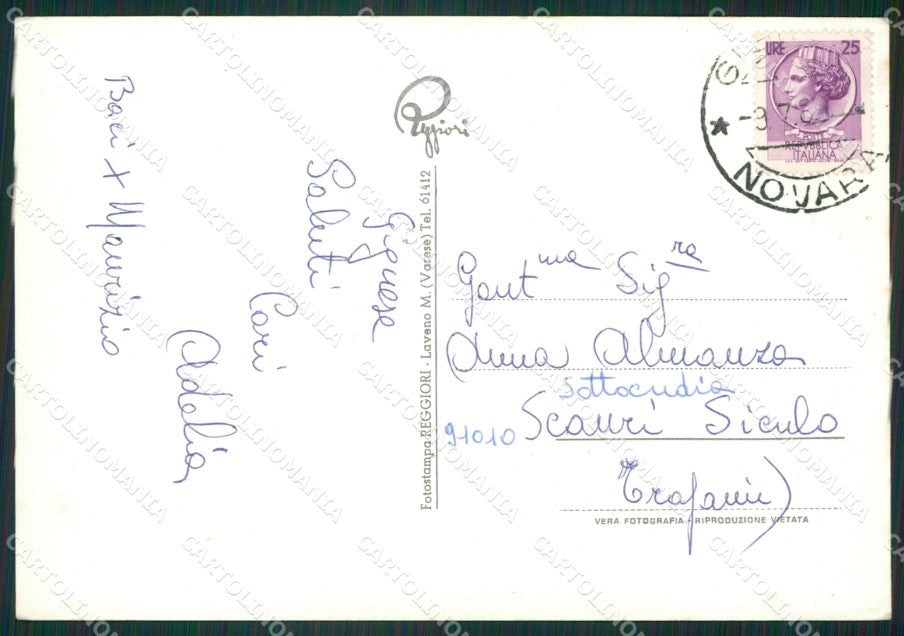 Baci x Maurizio
Gignese
Saluti
Cari
Adelia
Reggiori
Fotostampa REGGIORI - Laveno M. (Varese) Tel. 61412
LIRE 25
POSTE
REPUBBLICA
ITALIANA
NOVARA
Gent ma Sig ra
Anna Almanza
sottocudia
91010 Scauri Siculo
Trapani)
VERA FOTOGRAFIA - RIPRODUZIONE VIETATA
CARTOLINOMANIA